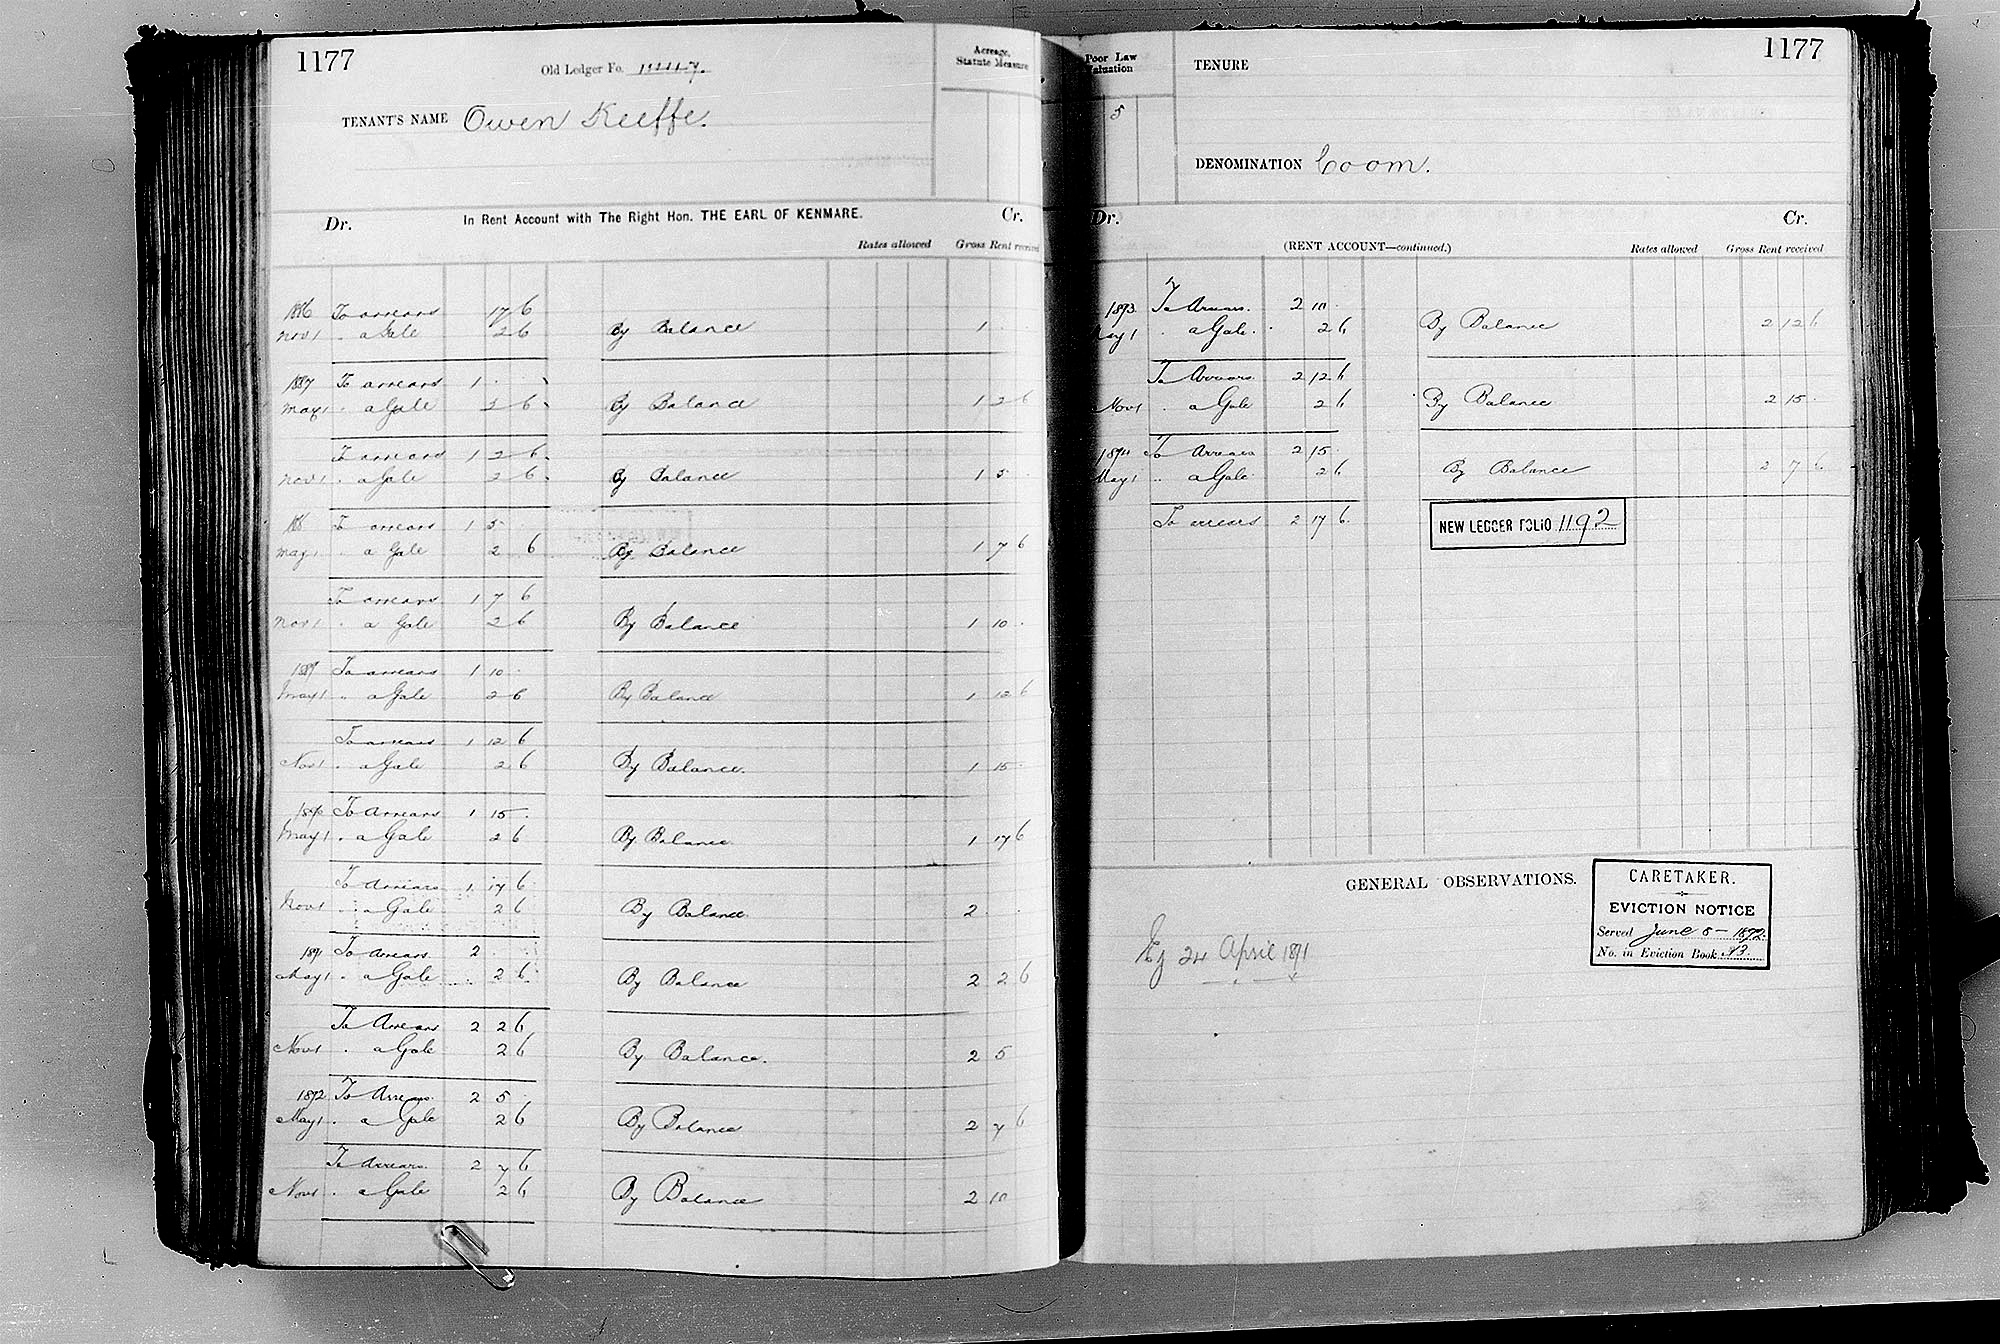 1177
Old Ledger Fo.
Acreage, Statute Measure
TENANT'S NAME Owen Keeffe.
Dr. In Rent Account with The Right Hon. THE EARL OF KENMARE. Cr.
Rates allowed Gross Rent received
1886 To arrears 17 6
Nov 1 . a Gale 2 6 By Balance 1 . .
1887 To arrears 1 . .
May 1 . a Gale 2 6 By Balance 1 2 6
To arrears 1 2 6
Nov 1 . a Gale 2 6 By Balance 1 5 .
188 To arrears 1 5 .
May 1 . a Gale 2 6 By Balance 1 7 6
To arrears 1 7 6
Nov 1 . a Gale 2 6 By Balance 1 10 .
1889 To arrears 1 10 .
May 1 " a Gale 2 6 By Balance 1 12 6
To arrears 1 12 6
Nov 1 . a Gale 2 6 By Balance. 1 15 .
1890 To Arrears 1 15 .
May 1 . a Gale 2 6 By Balance 1 17 6
To Arrears 1 17 6
Nov 1 . a Gale 2 6 By Balance 2 . .
1891 To Arrears 2 . .
May 1 . a Gale 2 6 By Balance 2 2 6
To Arrears 2 2 6
Nov 1 . a Gale 2 6 By Balance. 2 5
1892 To Arrears. 2 5 .
May 1 . a Gale 2 6 By Balance 2 7 6
To Arrears. 2 7 6
Nov 1 . a Gale 2 6 By Balance 2 10
Poor Law Valuation
5
TENURE
1177
DENOMINATION Coom.
Dr. Cr.
(RENT ACCOUNT—continued.) Rates allowed Gross Rent received
1893 To Arrears. 2 10 .
May 1 . a Gale. 2 6 By Balance 2 12 6
To Arrears. 2 12 6
Nov 1 . a Gale 2 6 By Balance 2 15 .
1894 To Arrears 2 15 .
May 1 " a Gale 2 6 By Balance 2 7 6
To arrears 2 17 6
NEW LEDGER FOLIO 1192
GENERAL OBSERVATIONS.
CARETAKER.
EVICTION NOTICE
Served June 8 - 1892.
No. in Eviction Book
24 April 1891